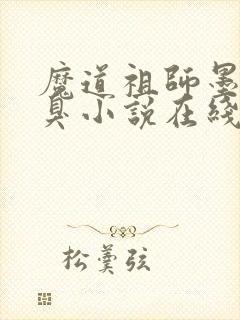 魔道祖師墨
臭小說在綫
松羹弦